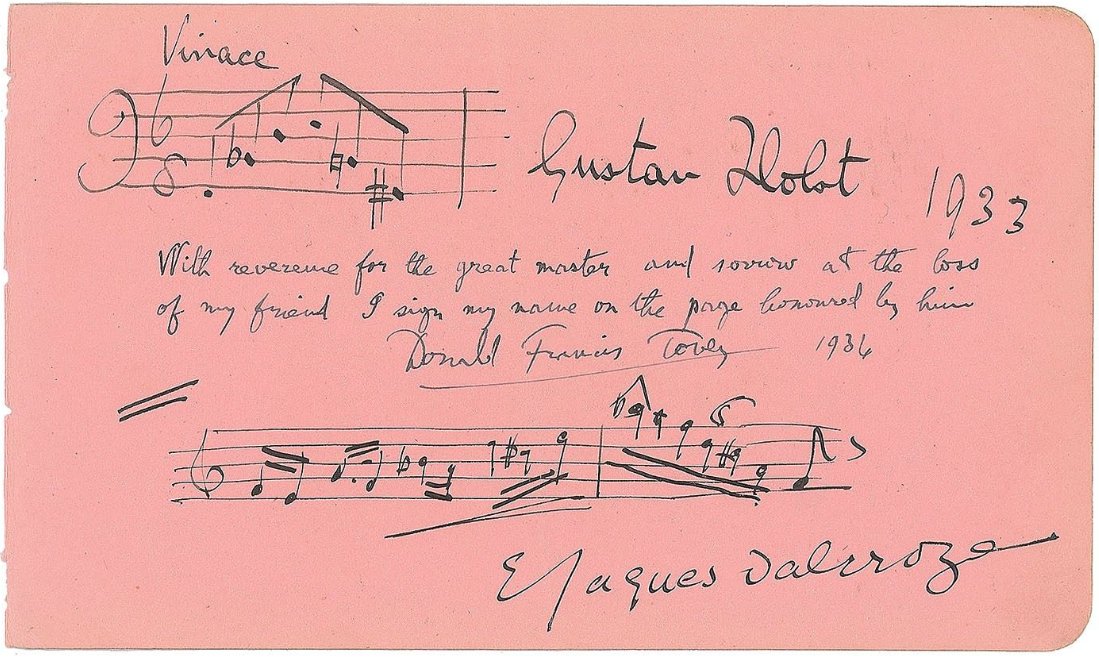 Vivace
6
8
Gustav Holst
1933
With reverence for the great master and sorrow at the loss
of my friend I sign my name on the page honoured by him
Donald Francis Tovey 1934
6
E Jaques Dalcroze